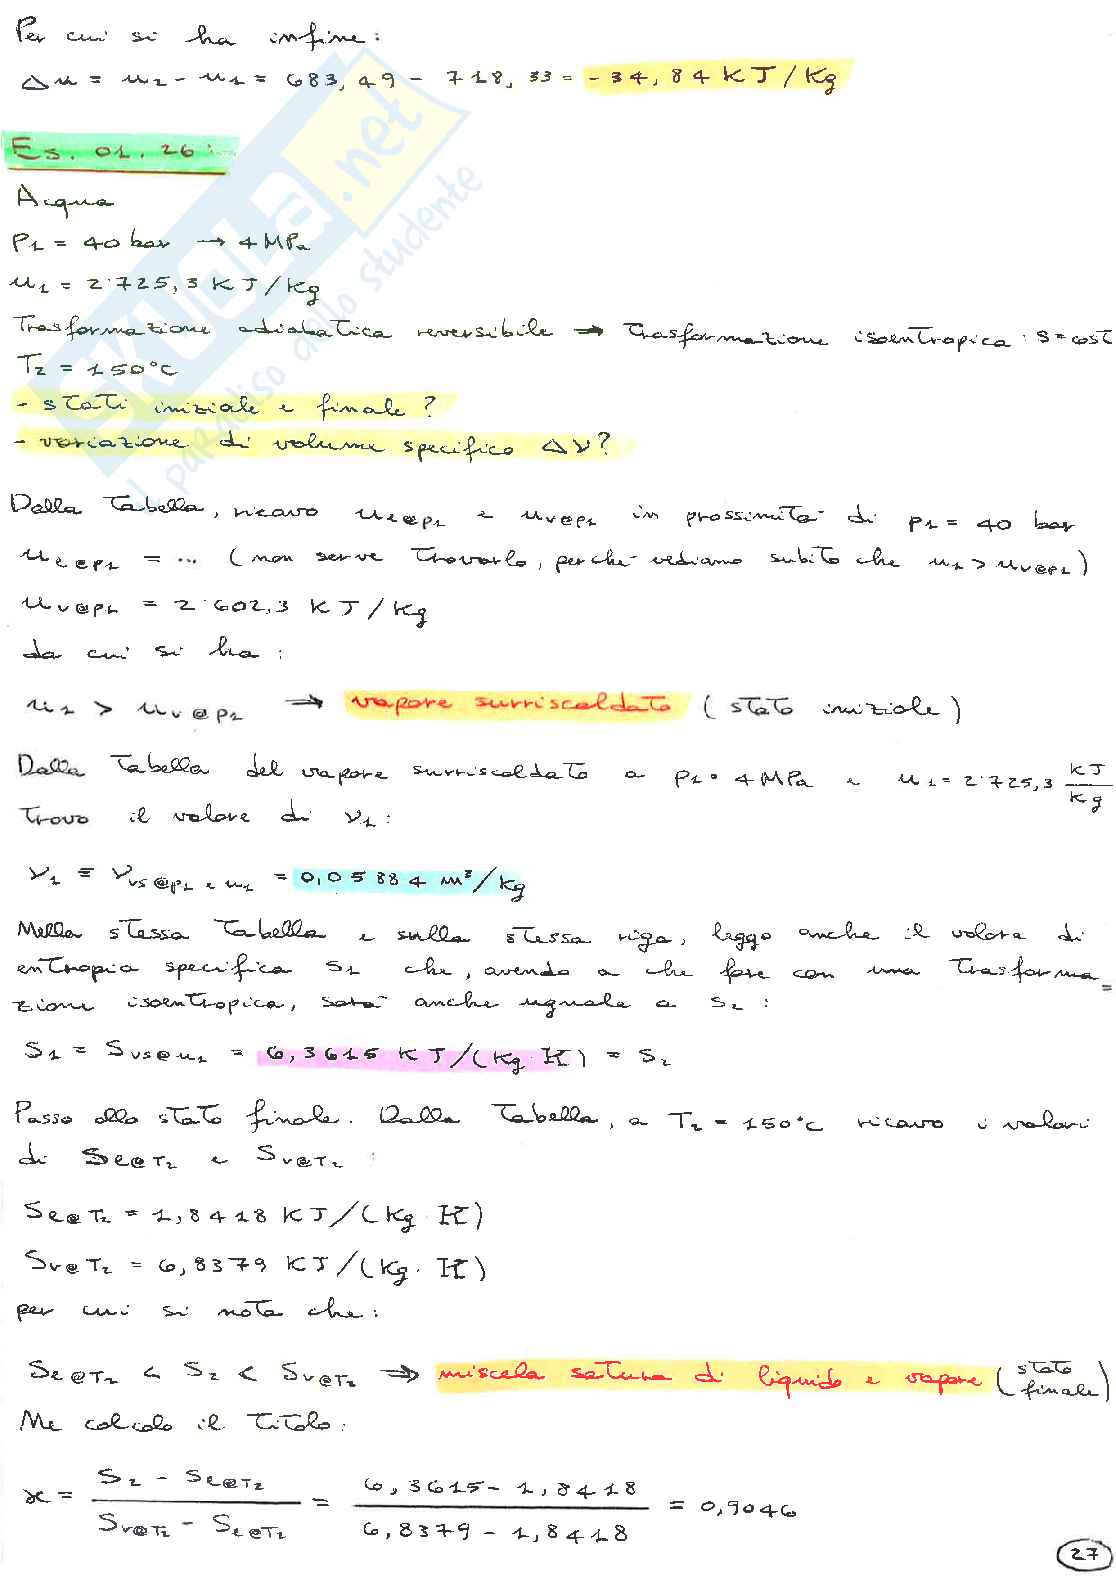 Per cui si ha infine:
Δu = u2 - u1 = 683,49 - 718,33 = -34,84 KJ/Kg
Es. 01.26:
Acqua
P1 = 40 bar → 4 MPa
u1 = 2'725,3 KJ/Kg
Trasformazione adiabatica reversibile ⇒ trasformazione isoentropica: s=cost
T2 = 150°C
- stati iniziale e finale?
- variazione di volume specifico Δν?
Dalla tabella, ricavo ul@p1 e uv@p1 in prossimità di p1 = 40 bar
ul@p1 = ... (non serve trovarlo, perché vediamo subito che u1 > uv@p1)
uv@p1 = 2'602,3 KJ/Kg
da cui si ha:
u1 > uv@p1 ⇒ vapore surriscaldato (stato iniziale)
Dalla tabella del vapore surriscaldato a p1 = 4 MPa e u1 = 2'725,3 KJ/Kg
trovo il valore di ν1:
ν1 ≡ νvs@p1 e u1 = 0,05884 m³/kg
Nella stessa tabella e sulla stessa riga, leggo anche il valore di
entropia specifica s1 che, avendo a che fare con una trasforma=
zione isoentropica, sarà anche uguale a s2:
S1 = Svs@u1 = 6,3615 KJ/(Kg·K) = S2
Passo allo stato finale. Dalla tabella, a T2 = 150°C ricavo i valori
di Sl@T2 e Sv@T2:
Sl@T2 = 1,8418 KJ/(Kg·K)
Sv@T2 = 6,8379 KJ/(Kg·K)
per cui si nota che:
Sl@T2 < S2 < Sv@T2 ⇒ miscela satura di liquido e vapore (stato finale)
Me calcolo il titolo:
x = (S2 - Sl@T2) / (Sv@T2 - Sl@T2) = (6,3615 - 1,8418) / (6,8379 - 1,8418) = 0,9046
27
SKUOLA.net
il paradiso dello studente